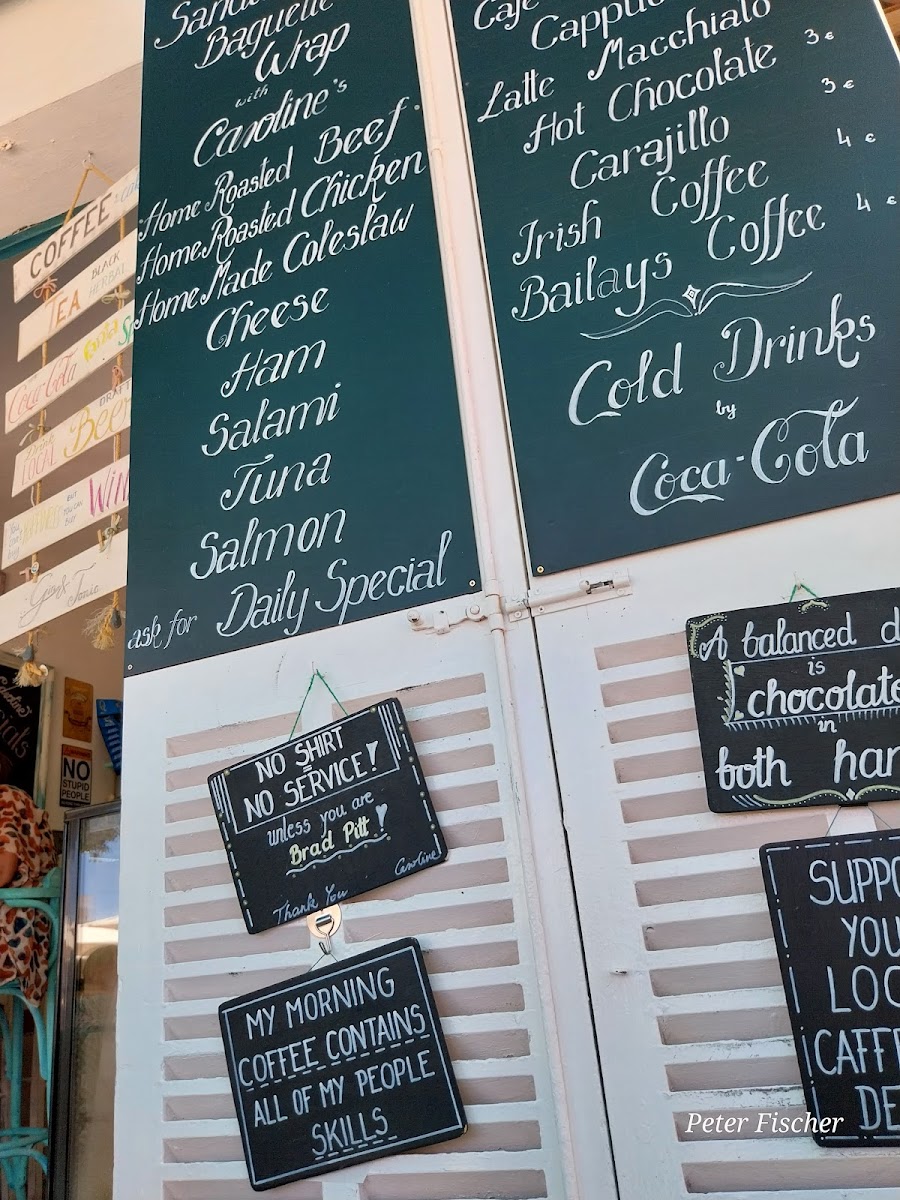 Baguette
Wrap
with
Caroline's
Home Roasted Beef
Home Roasted Chicken
Home Made Coleslaw
Cheese
Ham
Salami
Tuna
Salmon
ask for Daily Special
Latte Macchiato
Hot Chocolate 3 €
Carajillo 3 €
Irish Coffee 4 €
Bailays Coffee 4 €
Cold Drinks
by
Coca-Cola
COFFEE
TEA BLACK
HERBAL
Coca-Cola
DRAFT
LOCAL Beer
BUT
YOU CAN
BUY
Gin & Tonic
NO
STUPID
PEOPLE
NO SHIRT
NO SERVICE!
unless you are
Brad Pitt!
Caroline
Thank You
MY MORNING
COFFEE CONTAINS
ALL OF MY PEOPLE
SKILLS
A balanced d
is
chocolate
in
both han
SUPPO
YOU
LOC
CAFF
DE
Peter Fischer